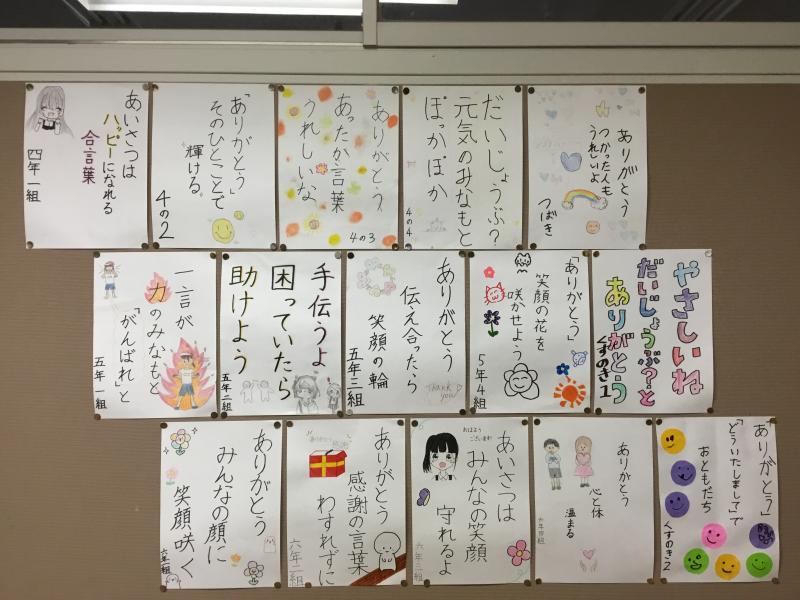 あいさつは
ハッピーになれる
合言葉
四年一組
「ありがとう」
そのひとことで
輝ける
4の2
ありがとう
あったか言葉
うれしいな
4の3
だいじょうぶ?
元気のみなもと
ぽっかぽか
4の4
ありがとう
つかった人も
うれしいよ
つばき
一言が
力のみなもと
「がんばれ」と
五年一組
手伝うよ
困っていたら
助けよう
五年二組
ありがとう
伝え合ったら
笑顔の輪
五年三組
THANK
YOU
「ありがとう」
笑顔の花を
咲かせよう
5年4組
やさしいね
だいじょうぶ?と
ありがとう
くすのき1
ありがとう
みんなの顔に
笑顔咲く
六年一組
ありがとう
感謝の言葉
わすれずに
六年二組
おはよう
ございます
あいさつは
みんなの笑顔
守れるよ
六年三組
ありがとう
心と体
温まる
六年四組
「ありがとう」
「どういたしまして」で
おともだち
くすのき2